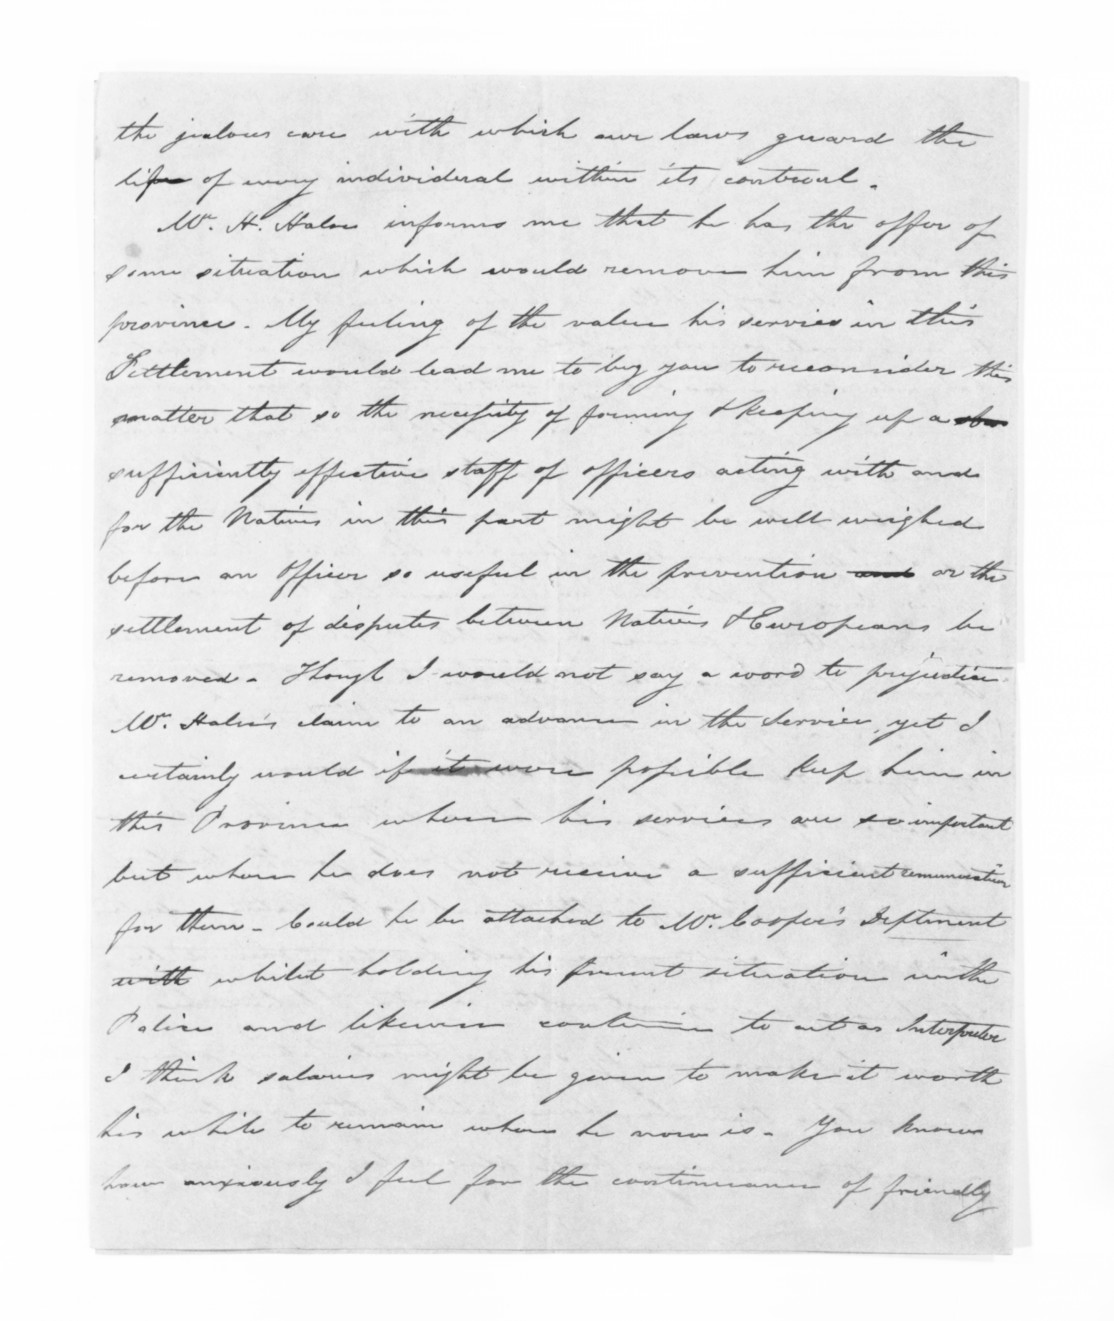 the jealous care with which our laws guard the
life of every individual within its controul.
Mr. H. Halse informs me that he has the offer of
some situation which would remove him from this
province. My feeling of the value his services in this
Settlement would lead me to beg you to reconsider this
matter that so the necessity of forming & keeping up a
sufficiently effective staff of officers acting with and
for the Natives in this part might be well weighed
before an Officer so useful in the prevention and or the
settlement of disputes between Natives & Europeans be
removed. Though I would not say a word to prejudice
Mr. Halse's claim to an advance in the Service, yet I
certainly would if it were possible keep him in
this Province where his services are so important
but where he does not receive a sufficient remuneration
for them. Could he be attached to Mr. Cooper's Deptment
with whilst holding his present situation in the
Police and likewise continue to act as Interpreter
I think salaries might be given to make it worth
his while to remain where he now is. You know
how anxiously I feel for the continuance of friendly